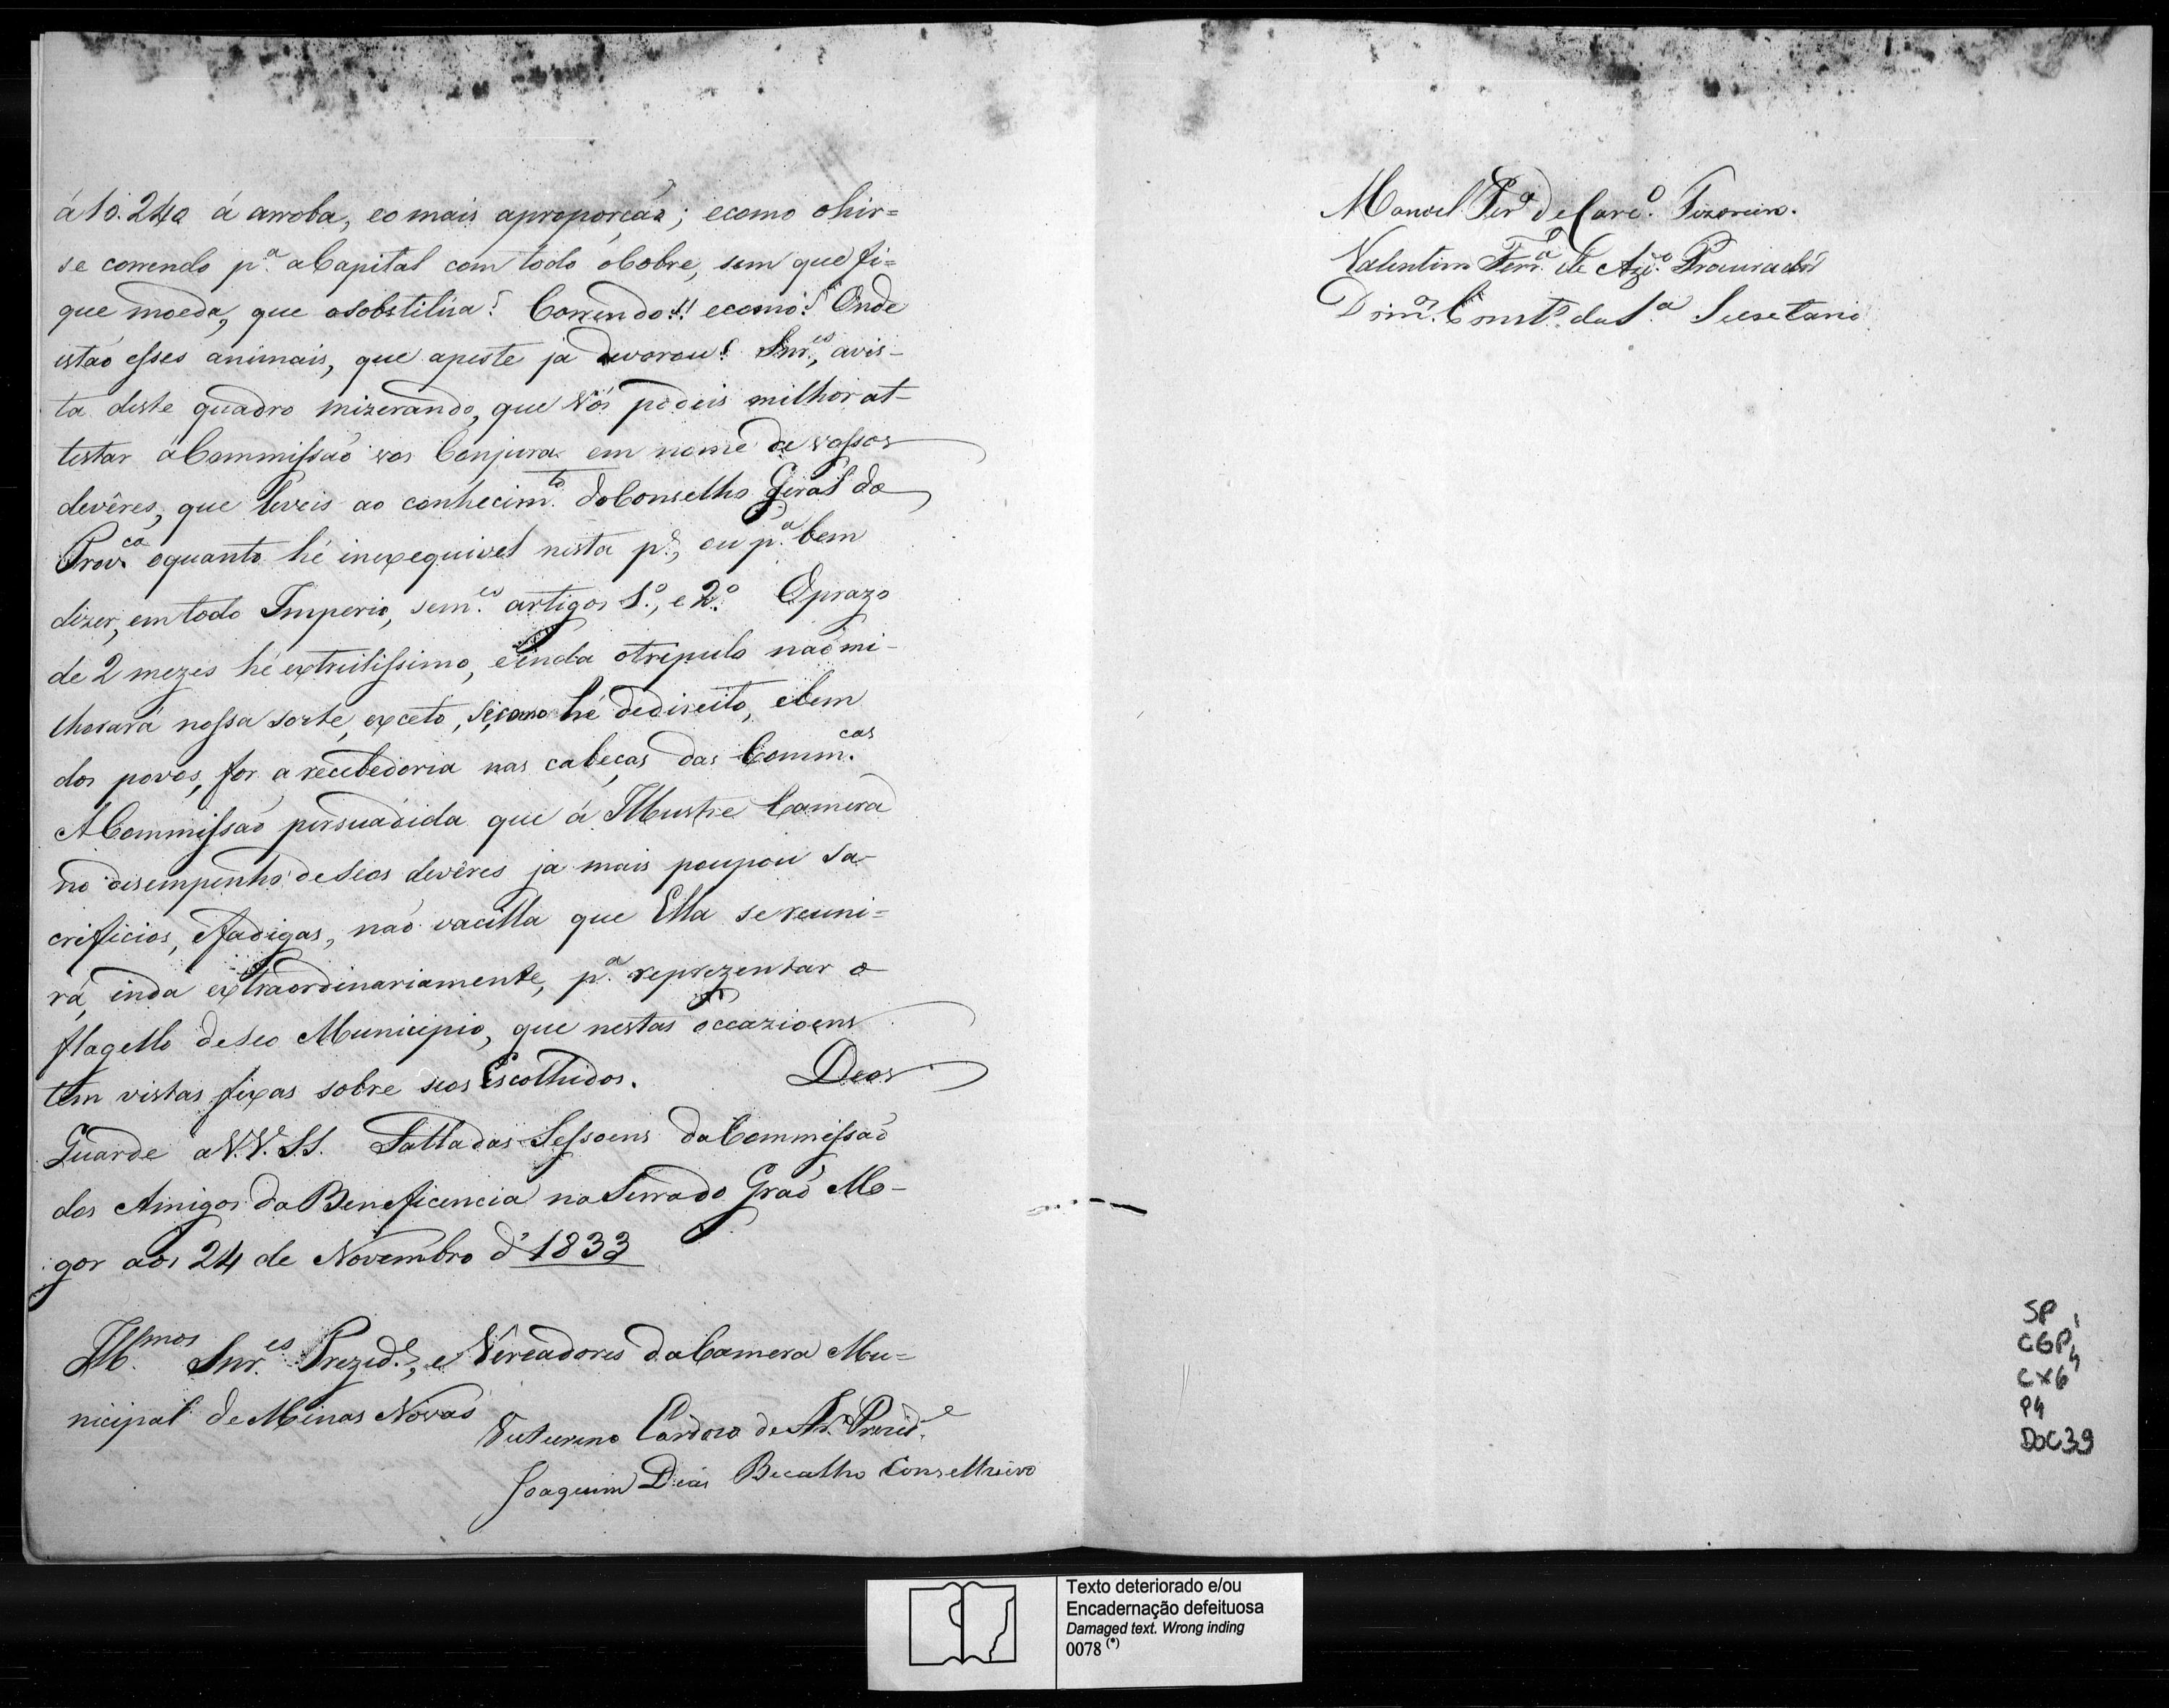 á 10.240 á arroba, eo mais aproporçaõ; ecomo ohir=
se correndo p.ª aCapital com todo oCobre, sem que fi=
que moeda, que osobstitúa? Correndo!!! ecomo? Onde
estaõ esses animais, que apeste ja devorou? Snr.es, avis-
ta deste quadro mizerando, que Vós podeis milhor at-
testar aCommissaõ vos Conjura em nome de vossos
devêres, que leveis ao conhecim.to doConselho Geral da
Prov.ca oquanto hé inexequivel nesta p.e, ou p.ª bem
dizer, em todo Imperio, sem.es artigos 1.º, e 2.º Oprazo
de 2 mezes hé extreitissimo, eînda otripulo naõ mi-
lhorará nossa sorte, exceto, se, como hé dedireito, ebem
dos povos, for a recebedoria nas cabeças das Comm.cas
ACommissaõ persuadida que á Illustre Camera
no desempenho deSeos devêres ja mais poupou sa-
crificios, efadigas, naõ vacilla que Ella se reuni=
rá, inda extraordinariamente, p.ª reprezentar o
flagello deSeo Municipio, que nestas occazioens
tem vistas fixas sobre seos Escolhidos. Deos
Guarde aV.V.SS. Salla das Sessoens daCommissaõ
dos Amigos da Beneficencia na Serra do Graõ Mo-
gor aos 24 de Novembro d'1833
Ill.mos Snr.es Prezid.e, e Vereadores daCamera Mu=
nicipal de Minas Novas
Cardozo de Prezid.e
Joaquim Dias Becalho Conselheiro
Manoel Per.ª de Carv.º Tizoreiro.
Valentim Ferr.ª de Az.do Procurador
Dom.os Const.º da S.ª Secretario
SP
CGP1
CX64
P4
DOC39
Texto deteriorado e/ou
Encadernação defeituosa
Damaged text. Wrong inding
0078 (*)